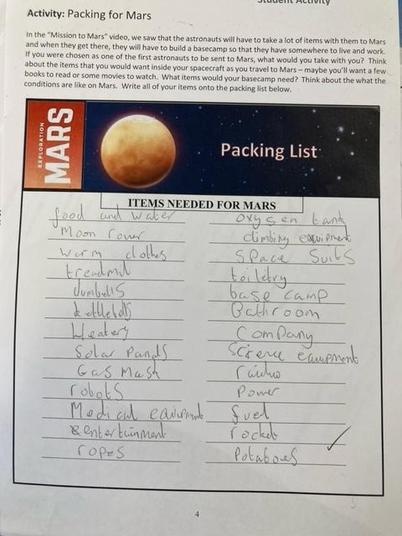 Student Activity
Activity: Packing for Mars
In the "Mission to Mars" video, we saw that the astronauts will have to take a lot of items with them to Mars
and when they get there, they will have to build a basecamp so that they have somewhere to live and work.
If you were chosen as one of the first astronauts to be sent to Mars, what would you take with you? Think
about the items that you would want inside your spacecraft as you travel to Mars – maybe you'll want a few
books to read or some movies to watch. What items would your basecamp need? Think about the what the
conditions are like on Mars. Write all of your items onto the packing list below.
EXPLORATION
MARS
Packing List
ITEMS NEEDED FOR MARS
food and water
Moon rover
warm clothes
treadmil
Dumbells
kettlebells
Heaters
Solar Panels
Gas Mask
robots
Medical equipment
& entertainment
ropes
oxygen tank
climbing equipment
Space Suits
toiletry
base camp
Bathroom
Company
Science equipment
radio
Power
fuel
rocket
Potatoes
4